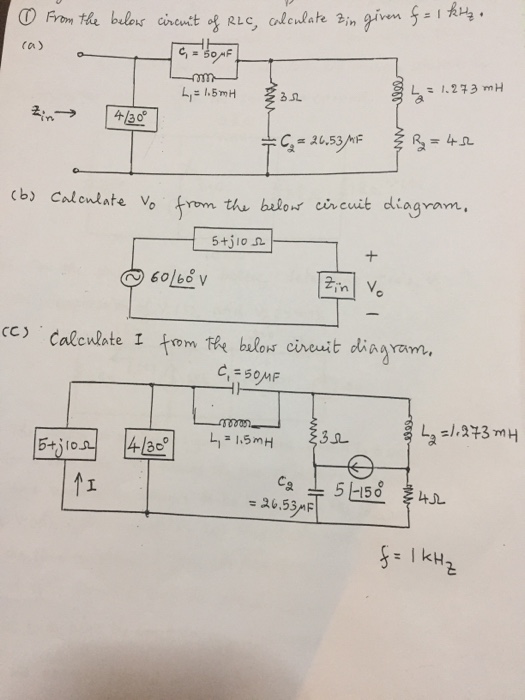 ① From the below circuit of RLC, calculate Zin given f = 1 kHz.
(a)
C₁ = 50μF
L₁ = 1.5mH
Zin →
4/30°
3Ω
C₂ = 26.53μF
L₂ = 1.273 mH
R₂ = 4Ω
(b) Calculate Vo from the below circuit diagram.
5+j10 Ω
60/60° V
Zin
+
Vo
−
(C) Calculate I from the below circuit diagram.
C₁ = 50μF
L₁ = 1.5mH
5+j10Ω
↑ I
4/30°
3Ω
C₂
= 26.53μF
5/-150°
L₂ = 1.273mH
4Ω
f = 1 kHz